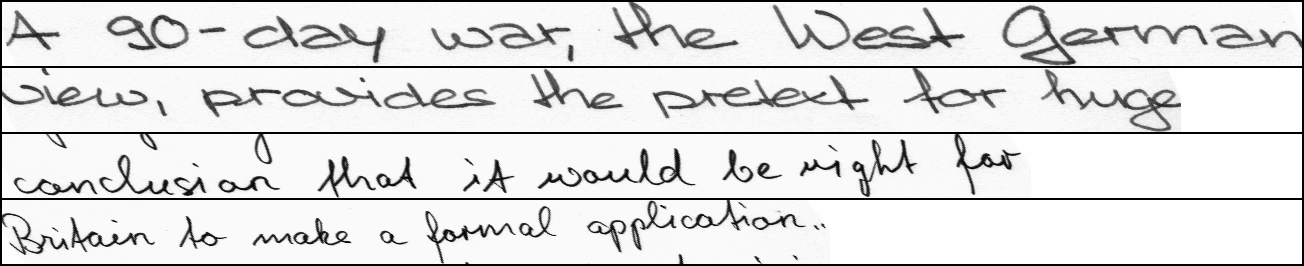 A 90-day war, the West German
view, provides the pretext for huge
conclusion that it would be right for
Britain to make a formal application..